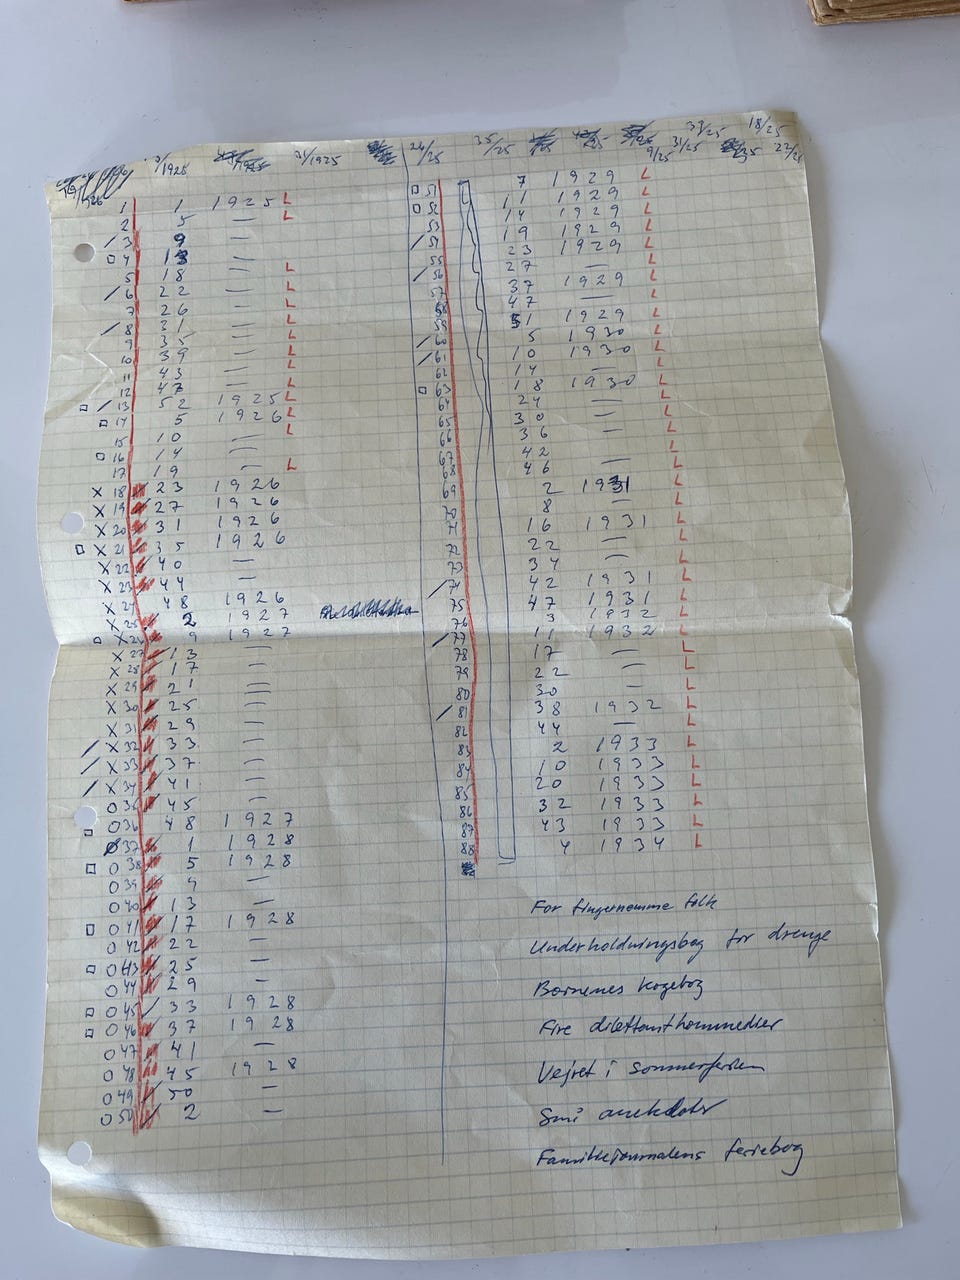 1925 31/1925 24/25 35/25 9/25 31/25 33/25 18/25
1 1 1925 L
2 5 — L
/ 3 9 —
□ 4 13 —
5 18 — L
/ 6 22 — L
7 26 — L
/ 8 31 — L
9 35 — L
10 39 — L
11 43 — L
12 47 — L
□ / 13 52 1925 L
□ 14 5 1926 L
15 10 — L
□ 16 14 —
17 19 — L
X 18 23 1926
X 19 27 1926
X 20 31 1926
□ X 21 35 1926
X 22 40 —
X 23 44 —
X 24 48 1926
X 25 2 1927
□ X 26 9 1927
X 27 13 —
X 28 17 —
X 29 21 —
X 30 25 —
X 31 29 —
/ X 32 33 —
/ X 33 37 —
/ X 34 41 —
O 35 45 —
□ O 36 48 1927
O 37 1 1928
□ O 38 5 1928
O 39 9 —
O 40 13 —
□ O 41 17 1928
O 42 22 —
□ O 43 25 —
O 44 29 —
□ O 45 33 1928
□ O 46 37 1928
O 47 41 —
O 48 45 1928
O 49 50 —
O 50 2 —
□ 51 7 1929 L
□ 52 11 1929 L
53 14 1929 L
/ 54 19 1929 L
55 23 1929 L
/ 56 27 — L
57 37 1929 L
58 47 — L
59 51 1929 L
/ 60 5 1930 L
/ 61 10 1930 L
62 14 — L
□ 63 18 1930 L
64 24 — L
65 30 — L
66 36 — L
67 42 L
68 46 — L
69 2 1931 L
70 8 — L
71 16 1931 L
72 22 — L
73 34 — L
/ 74 42 1931 L
75 47 1931 L
76 3 1932 L
/ 77 11 1932 L
78 17 — L
79 22 — L
80 30 — L
/ 81 38 1932 L
82 44 — L
83 2 1933 L
84 10 1933 L
85 20 1933 L
86 32 1933 L
87 43 1933 L
88 4 1934 L
For fingernemme folk
Underholdningsbog for drenge
Børnenes kogebog
Fire dilettantkommedier
Vejret i sommerferien
Små anekdoter
Familiejournalens feriebog